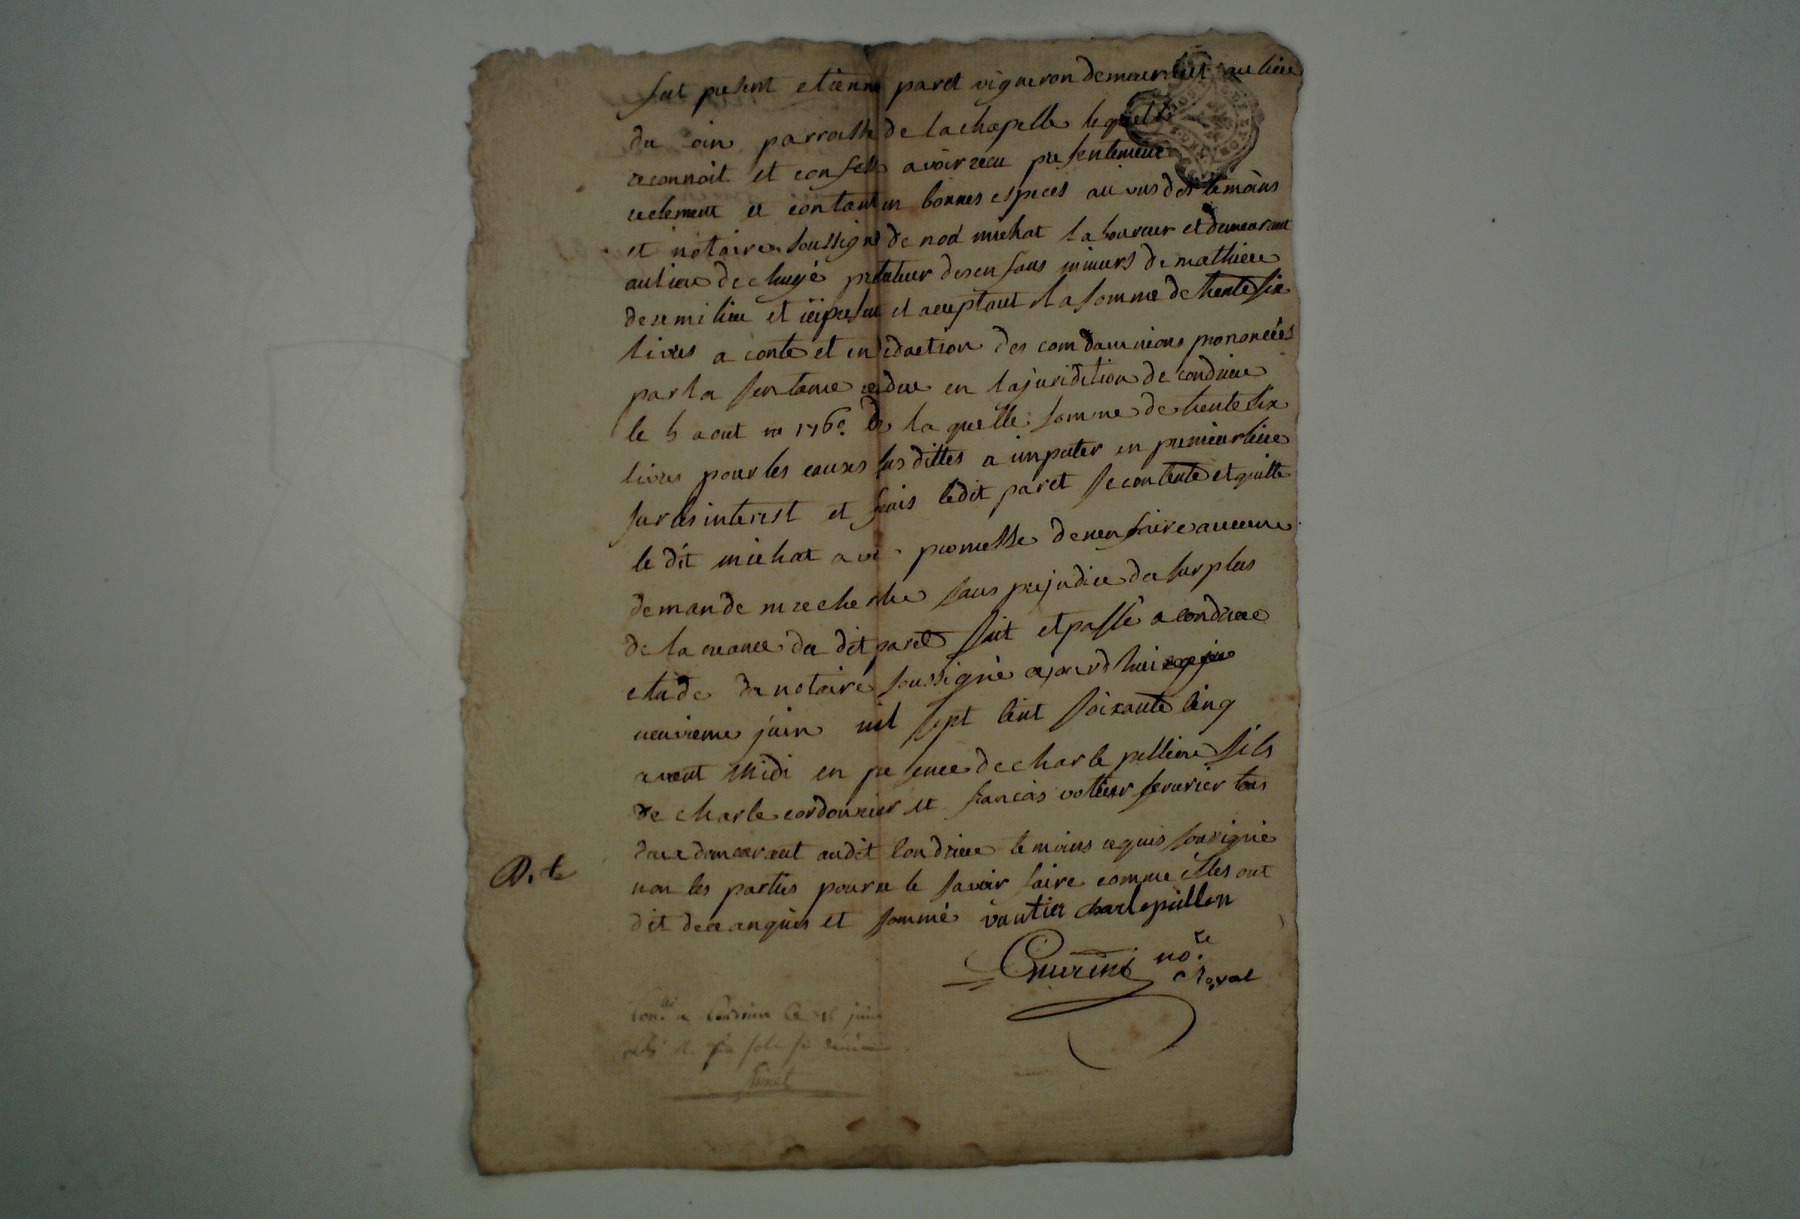 fut present etienne paret vigneron demeurant au lieu
du coin parroisse de la chapelle lequel
reconnoit et confesse avoir recu presentement
reelement et contant en bonnes especes au vus des temoins
et notaire soussigné de noel michat laboureur et demeurant
au lieu de chuyé tuteur des enfans mineurs de mathieu
et acceptant la somme de trente six
livres a conte et en deduction des condamnions prononcées
par la sentence rendue en la juridition de condrieu
le 5 aout 1760 de la quelle somme de trente six
livres pour les causes sus dittes a imputer en premier lieu
sur les interest et frais ledit paret se contente et quitte
le dit michat avec promesse de n'en faire aucune
demande ni recherche sans prejudice du surplus
de la creance du dit paret fait et passé a condrieu
etude du notaire soussigné ajourdhui
neuvieme juin mil sept cent soixante cinq
avant midi en presence de charle pellion fils
de charle cordonnier et francois votier serrurier tous
deux demeurant audit condrieu temoins requis soussigné
non les parties pour ne le savoir faire comme elles ont
dit de ce enquis et sommé vautier charle pillon
D. te
no.re
Royal
Con.lé a Condrieu le juin